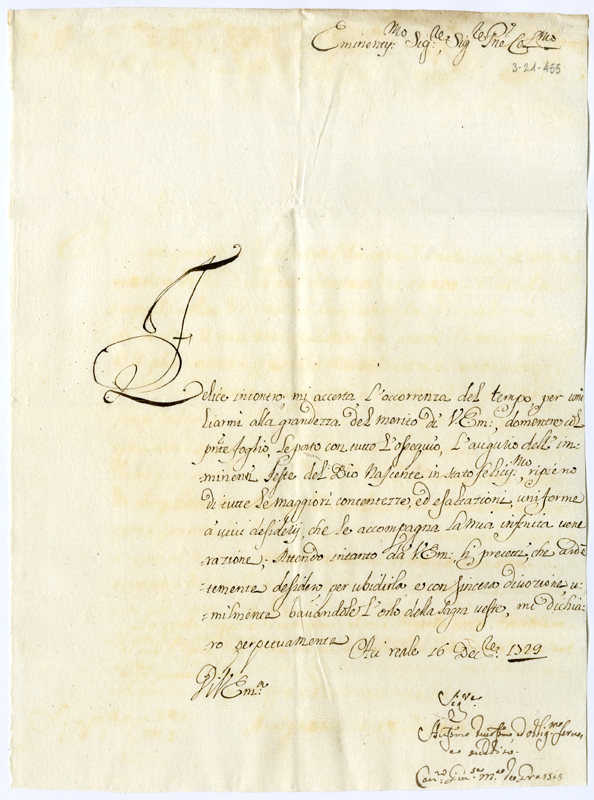 Eminentis.mo Sig.re, Sig.re P.ne Co.mo
3-21-455
Felice incontro, mi accerta, l'occorrenza del tempo, per umi
liarmi alla grandezza del merito di V.Em:, domentre col
pñte foglio, le porto con tutto l'ossequio, l'augurio dell'im=
minenti feste del Dio Nascente in stato feliciss.mo, ripieno
di tutte le maggiori contentezze, ed esaltationi, uniforme
a vivi desiderij, che le accompagna la mia infinita vene
ratione; Attendo intanto da V.Em: li precetti, che ardẽ
=temente desidero per ubidirla e con sincera divozione u=
=milmente baciandole l'orlo della sagra veste, mi dichia=
ro perpetuamente
Aci reale 16 Dec.re 1729
Di V.Em.a
Ser.re
Aff.mo Dev.mo ed obblig.mo servo,
e
Gius.e M.a de Grassis